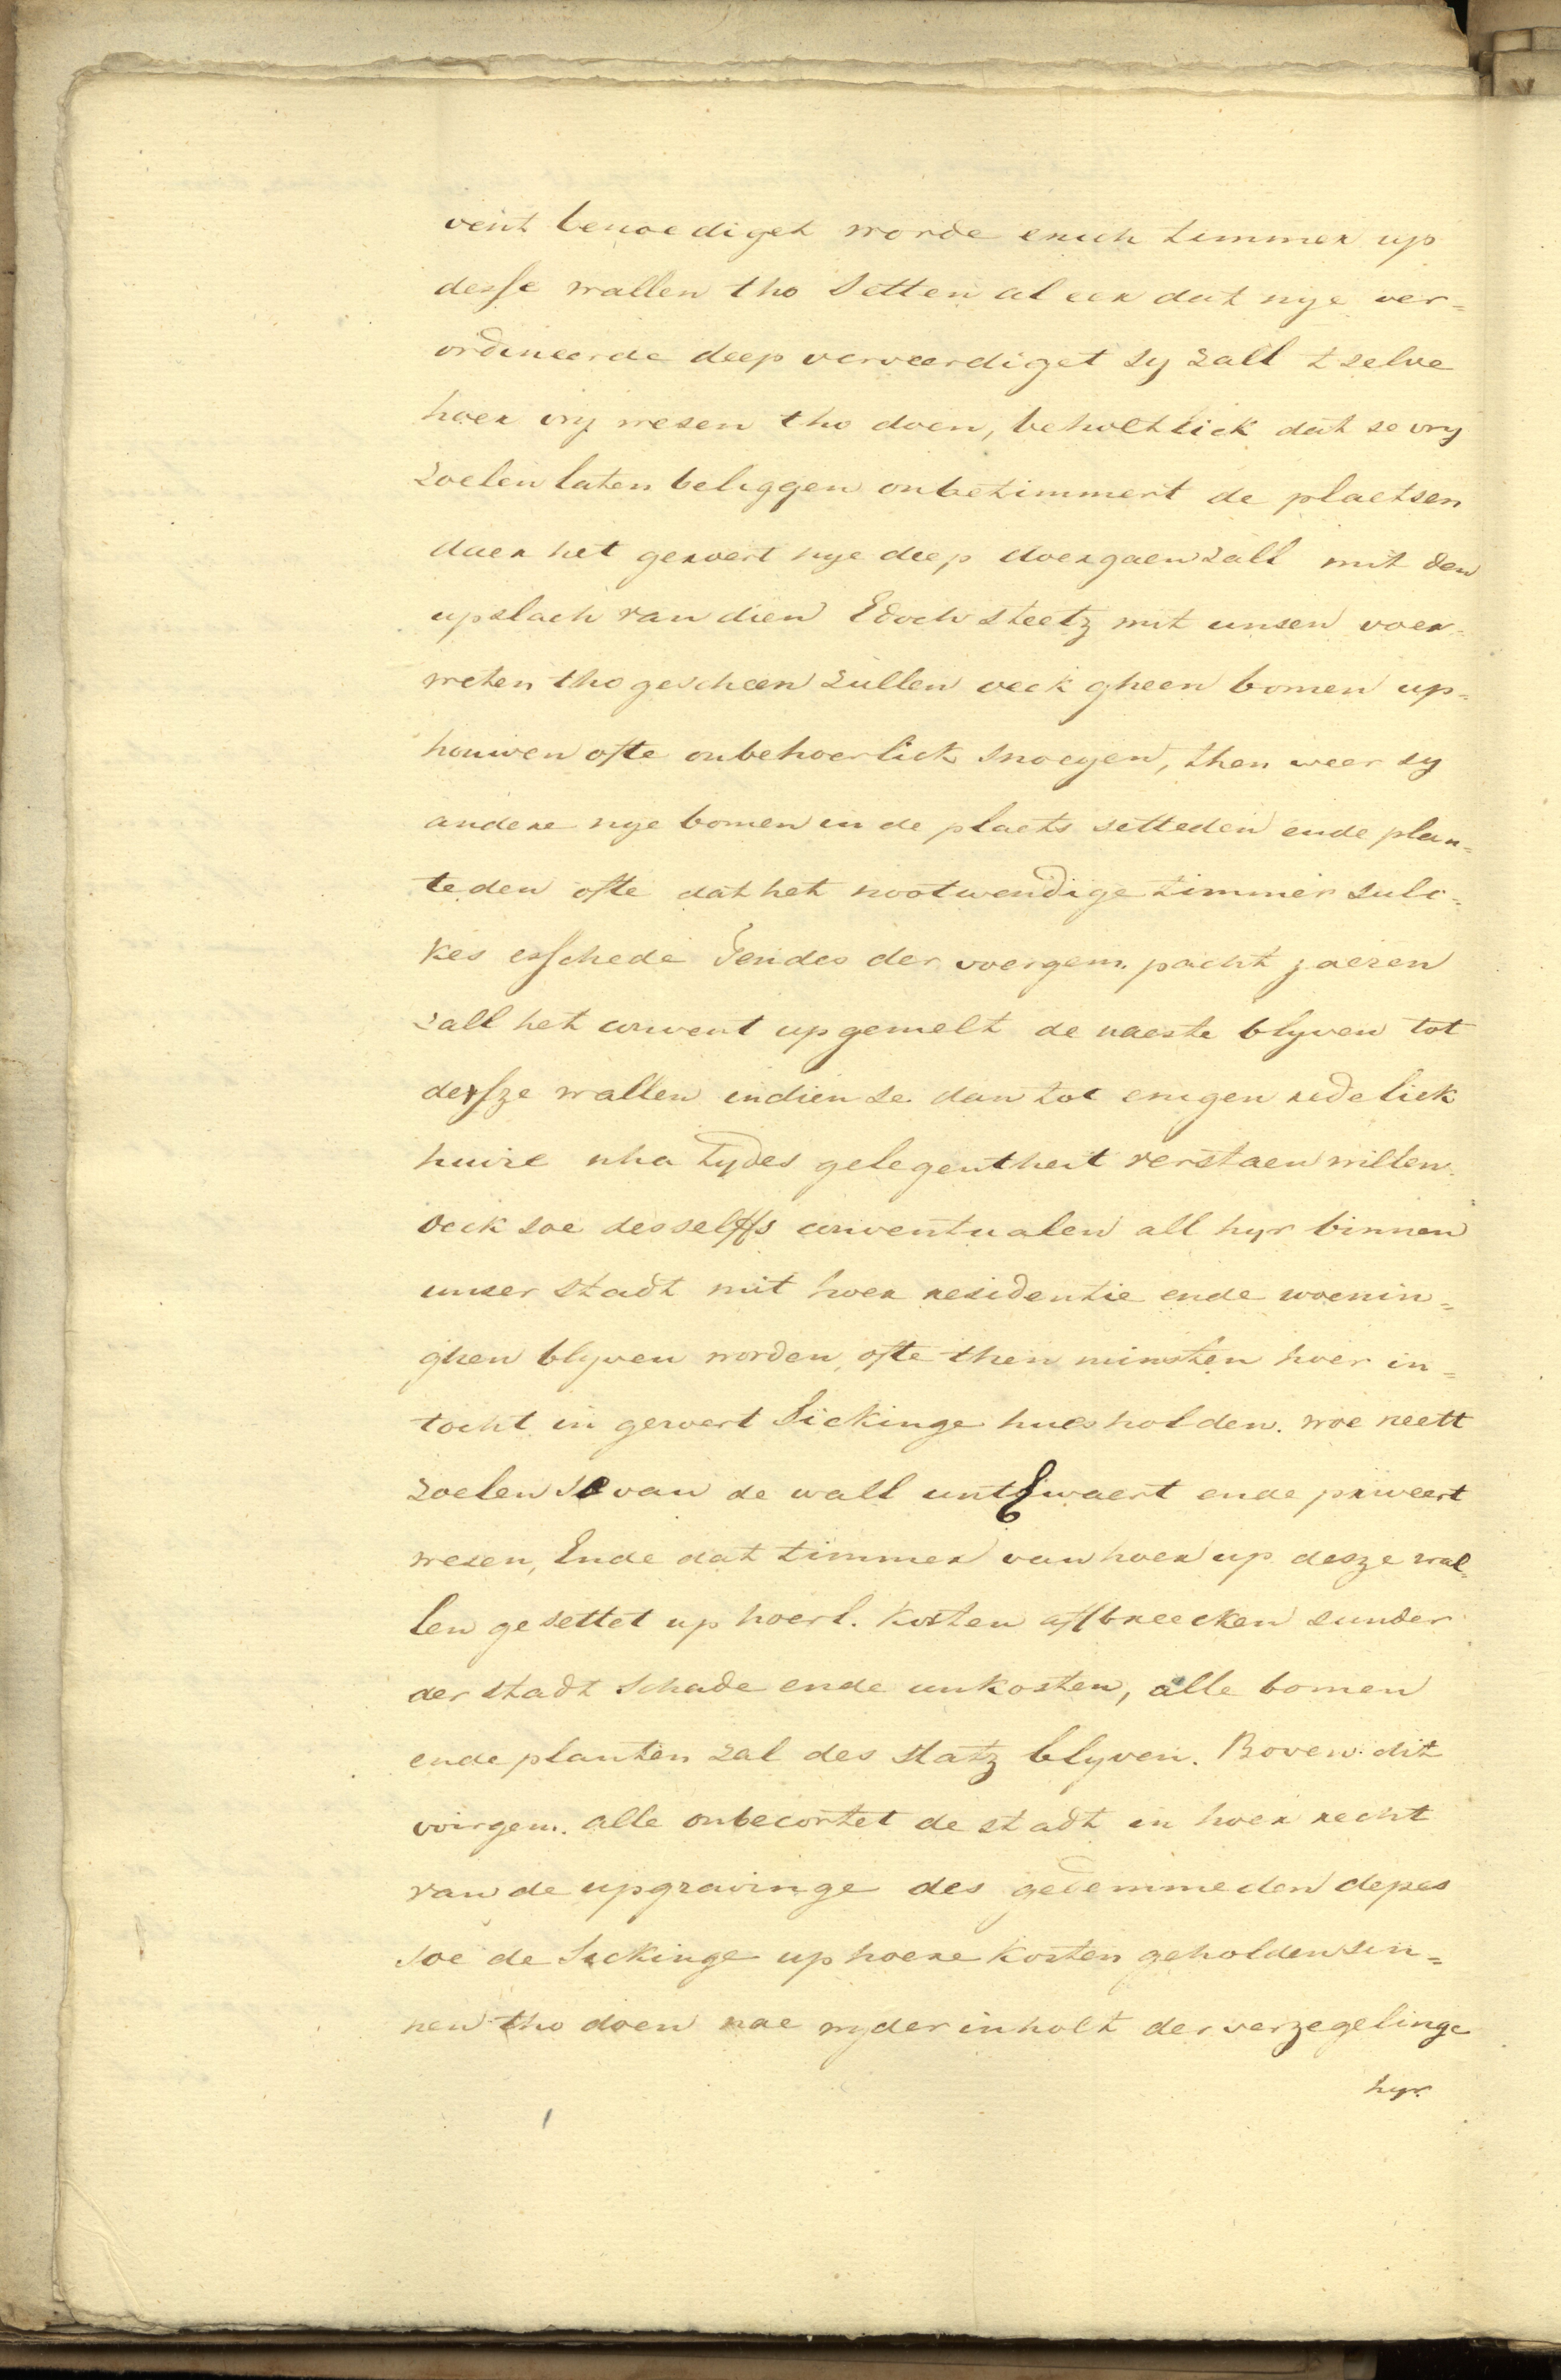 vent benoediget worde enich timmer up
desse wallen tho setten al eer dat nye ver=
ordineerde deep verveerdiget sy zall t zelve
hoer vry wesen tho doen, beholtlick dat se vry
zoelen laten beliggen onbetimmert de plaetsen
daer het geroert nye deep doergaen zall mit den
upslach van dien Edoch steetz mit unsen voer=
weten tho gescheen zullen oeck gheen bomen up=
houwen ofte onbehoerlick snoeyen, then weer sy
andere nye bomen in de plaets setteden ende plan=
teden ofte dat het nootwendige timmer sulc=
kes esschede Tendes der voergem. pacht jaeren
zall het convent upgemelt de naeste blyven tot
desze wallen indien se dan tot enigen redelick
huire nha tydes gelegentheit verstaen willen.
Oeck soe desselffs conventualen all hyr binnen
unser stadt mit hoer residentie ende woenin=
ghen blyven worden, ofte then minsten hoer in=
tocht in geroert Sickinge hues holden. woe neett
zoelen se van de wall untEwaert ende priveert
wesen, Ende dat timmer van hoer up desze wal=
len gesettet up hoerl. kosten affbreecken sunder
der stadt schade ende unkosten, alle bomen
ende planten zal des statz blyven. Boven dit
voirgem. alle onbecortet de stadt in hoer recht
van de upgravinge des gedemmeden depes
soe de Sickinge up hoere kosten geholden sin=
nen tho doen nae wyder inholt der verzegelinge
hyr